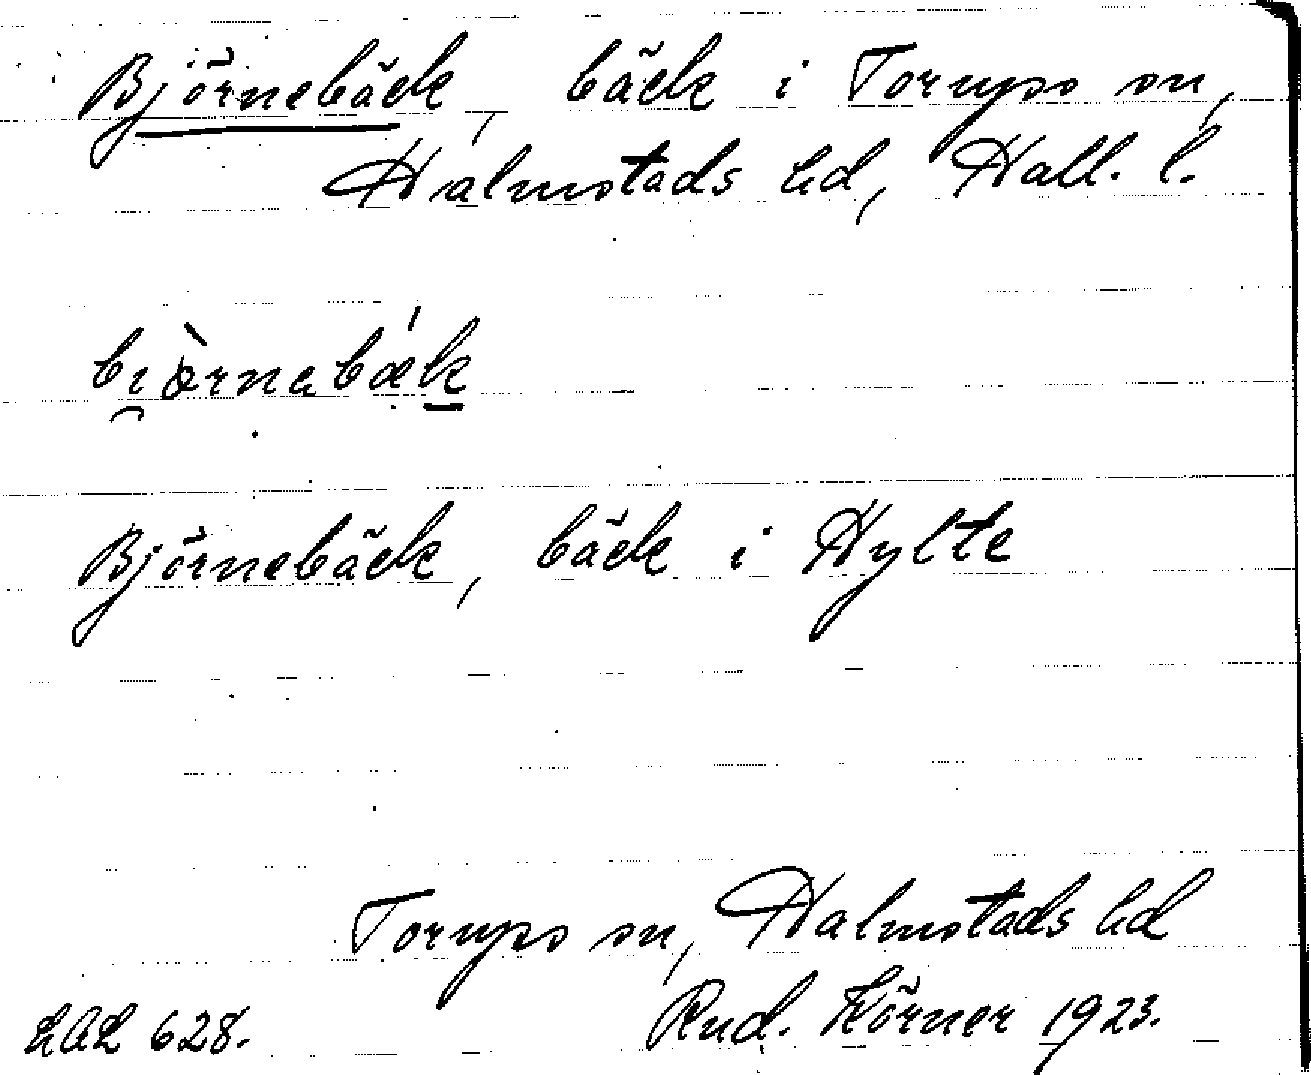 Björnebäck, bäck i Torups sn,
Halmstads hd, Hall. l.
bi̯ö̀rnabǽk
Björnebäck, bäck i Hylte
Torups sn, Halmstads hd
LAL 628. Rud. Körner 1923.